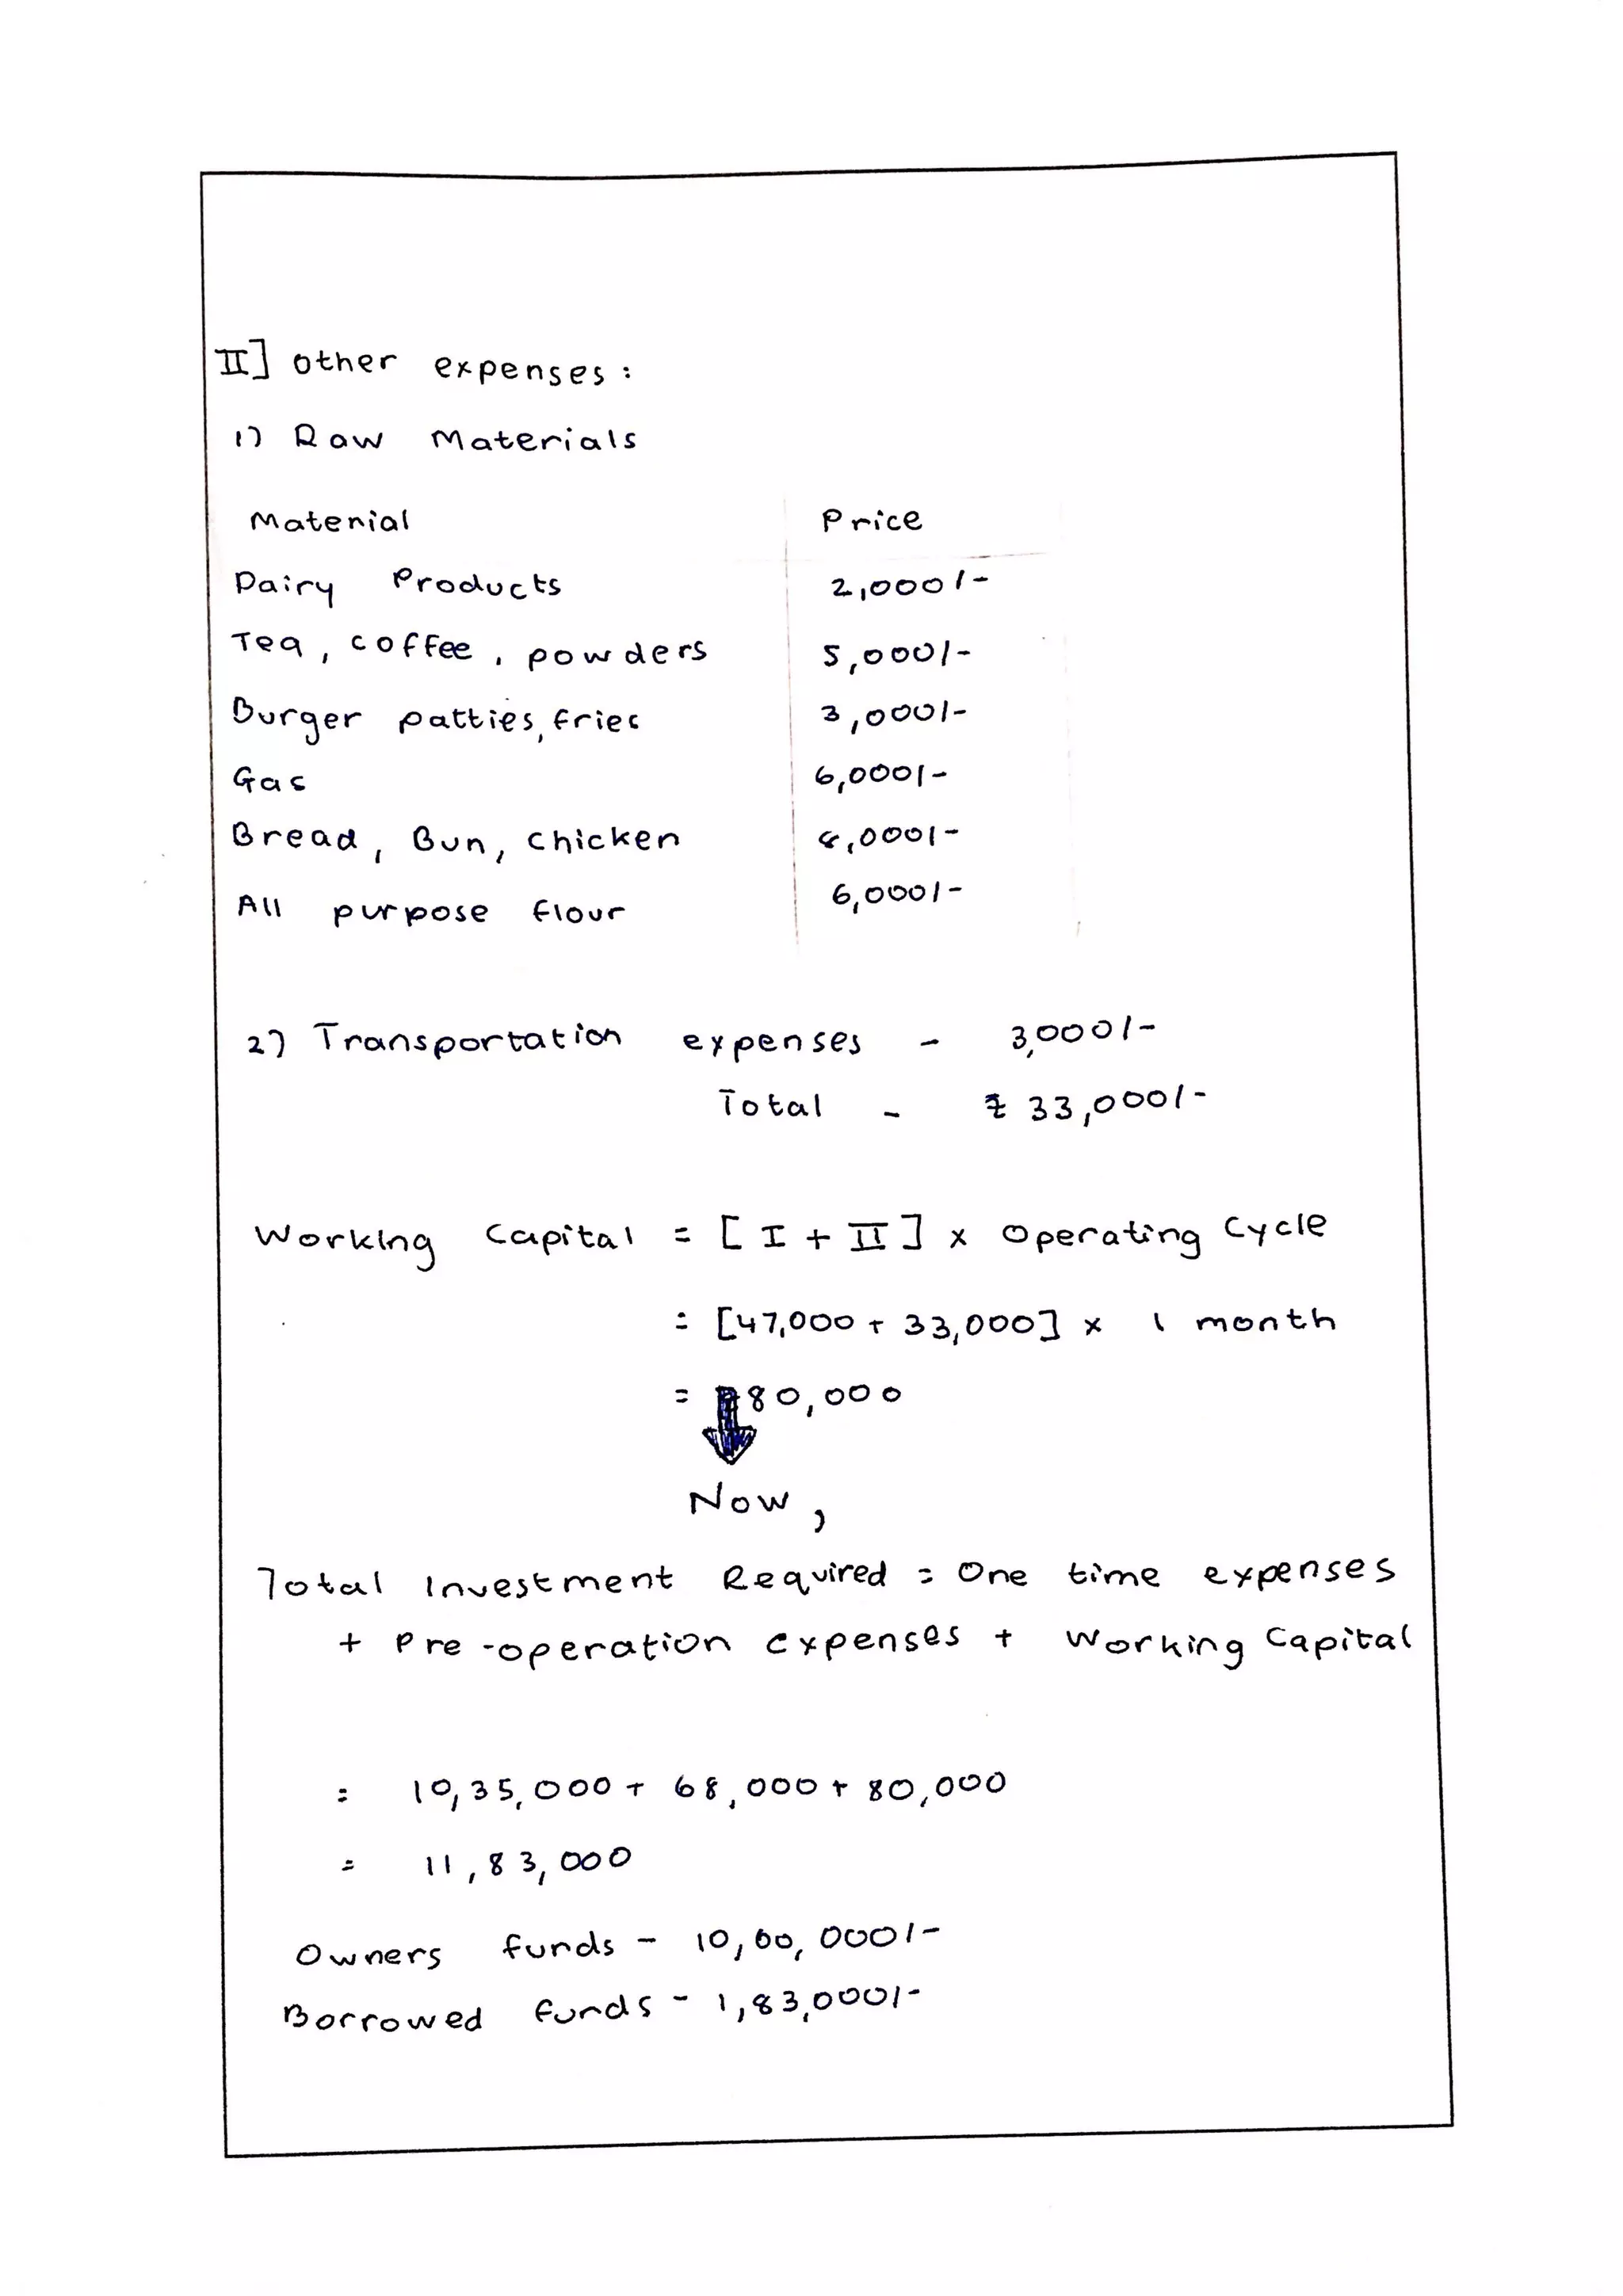 II] other expenses :
1) Raw Materials
Material Price
Dairy Products 2,000/-
Tea, coffee, powders 5,000/-
Burger patties, fries 3,000/-
Gas 6,000/-
Bread, Bun, chicken 8,000/-
All purpose flour 6,000/-
2) Transportation expenses - 3,000/-
Total - ₹ 33,000/-
Working Capital = [ I + II ] x Operating Cycle
= [47,000 + 33,000] x 1 month
= 80,000
Now,
Total Investment Required = One time expenses
+ Pre-operation expenses + Working Capital
= 10,35,000 + 68,000 + 80,000
= 11,83,000
Owners funds - 10,00,000/-
Borrowed funds - 1,83,000/-